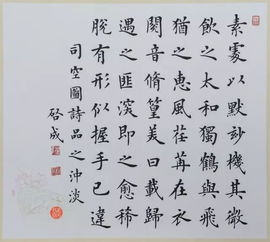 素處以默妙機其微
飲之太和獨鶴與飛
猶之惠風荏苒在衣
閱音脩篁美曰載歸
遇之匪深即之愈稀
脫有形似握手已違
司空圖詩品之沖淡
啓成